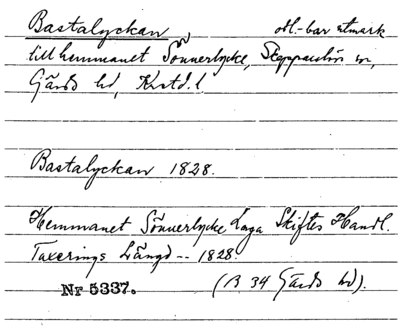 Bastalyckan odl.-bar utmark
till hemmanet Sönnerlycke, Skepparslöv sn,
Gärds hd, Krstd. l
Bastalyckan 1828.
Hemmanet Sönnerlycke Laga Skiftes Handl.
Taxerings Längd -- 1828.
Nr 5337. (B 34 Gärds hd).